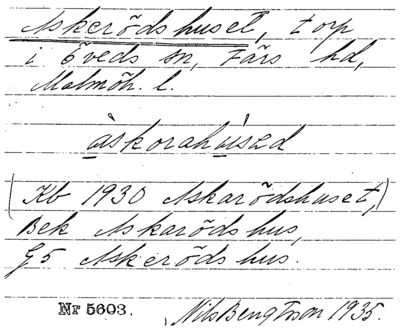 Askerödshuset, torp
i Öveds sn, Färs hd,
Malmöh. l.
àskorahùsəd
(Kb 1930 Askarödshuset,)
Bek Askarödshus,
G5 Askerödshus.
Nr 5603. Nils Bengtsson 1935.